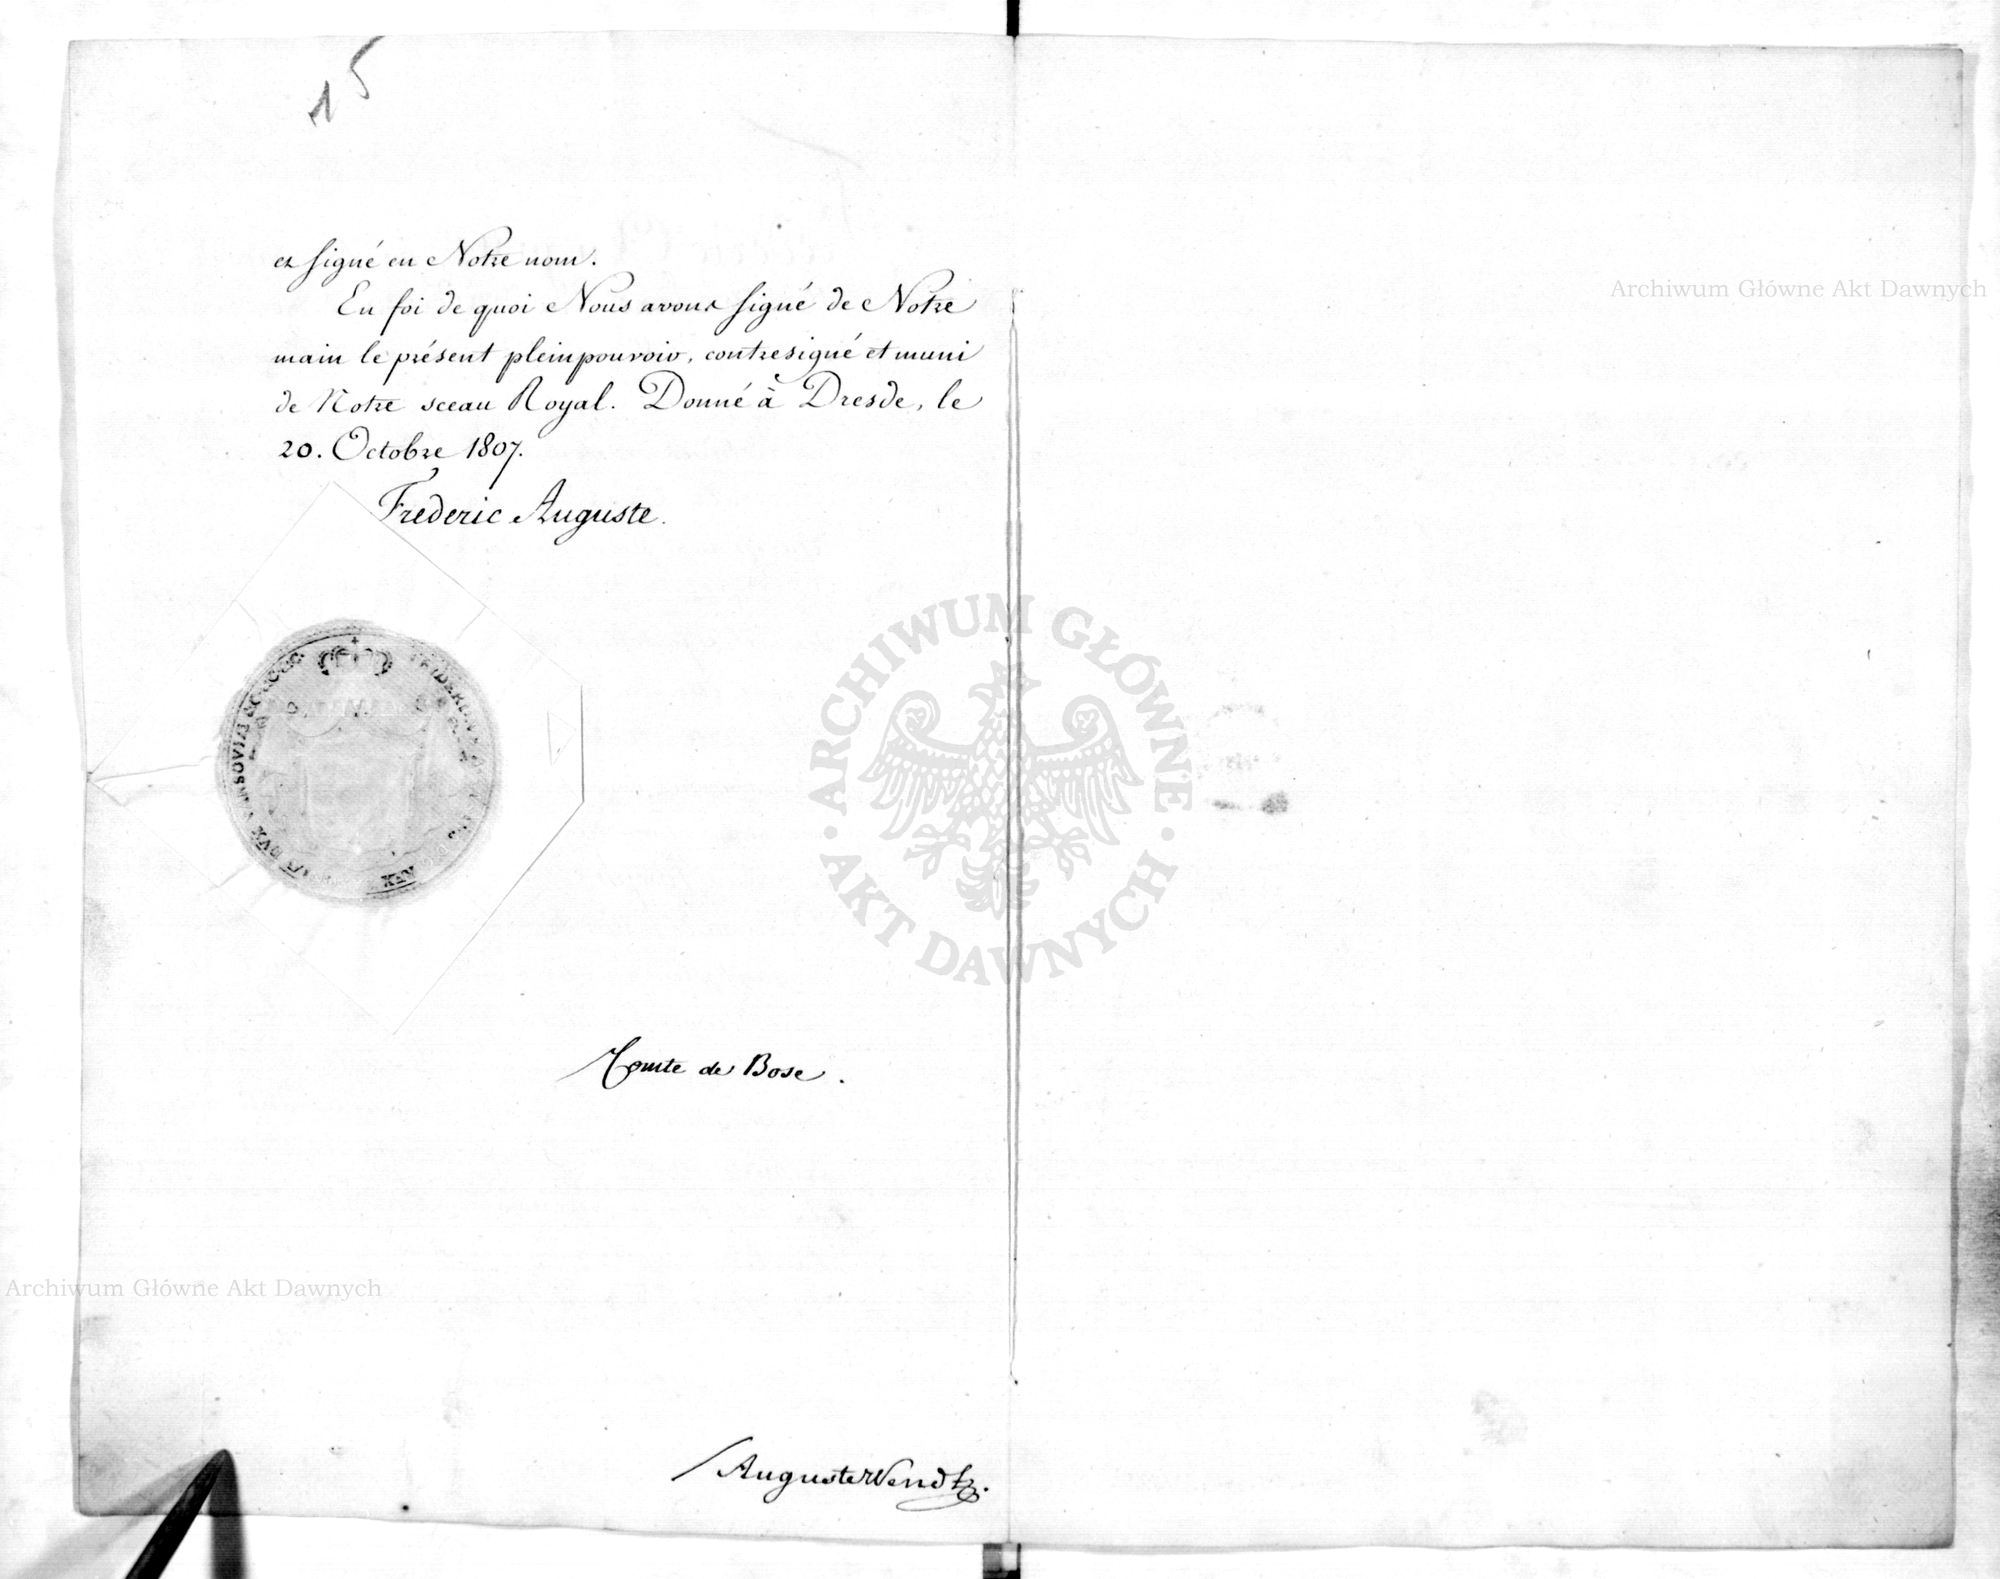 15
et signé en Notre nom.
En foi de quoi Nous avons signé de Notre
main le présent pleinpouvoir, contresigné et muni
de Notre sceau Royal. Donné à Dresde, le
20. Octobre 1807.
Fréderic Auguste.
VARSOVIAE
DVX
REX
Comte de Bose.
Auguste Wendt
Archiwum Główne Akt Dawnych
ARCHIWUM GŁÓWNE
AKT DAWNYCH
Archiwum Główne Akt Dawnych